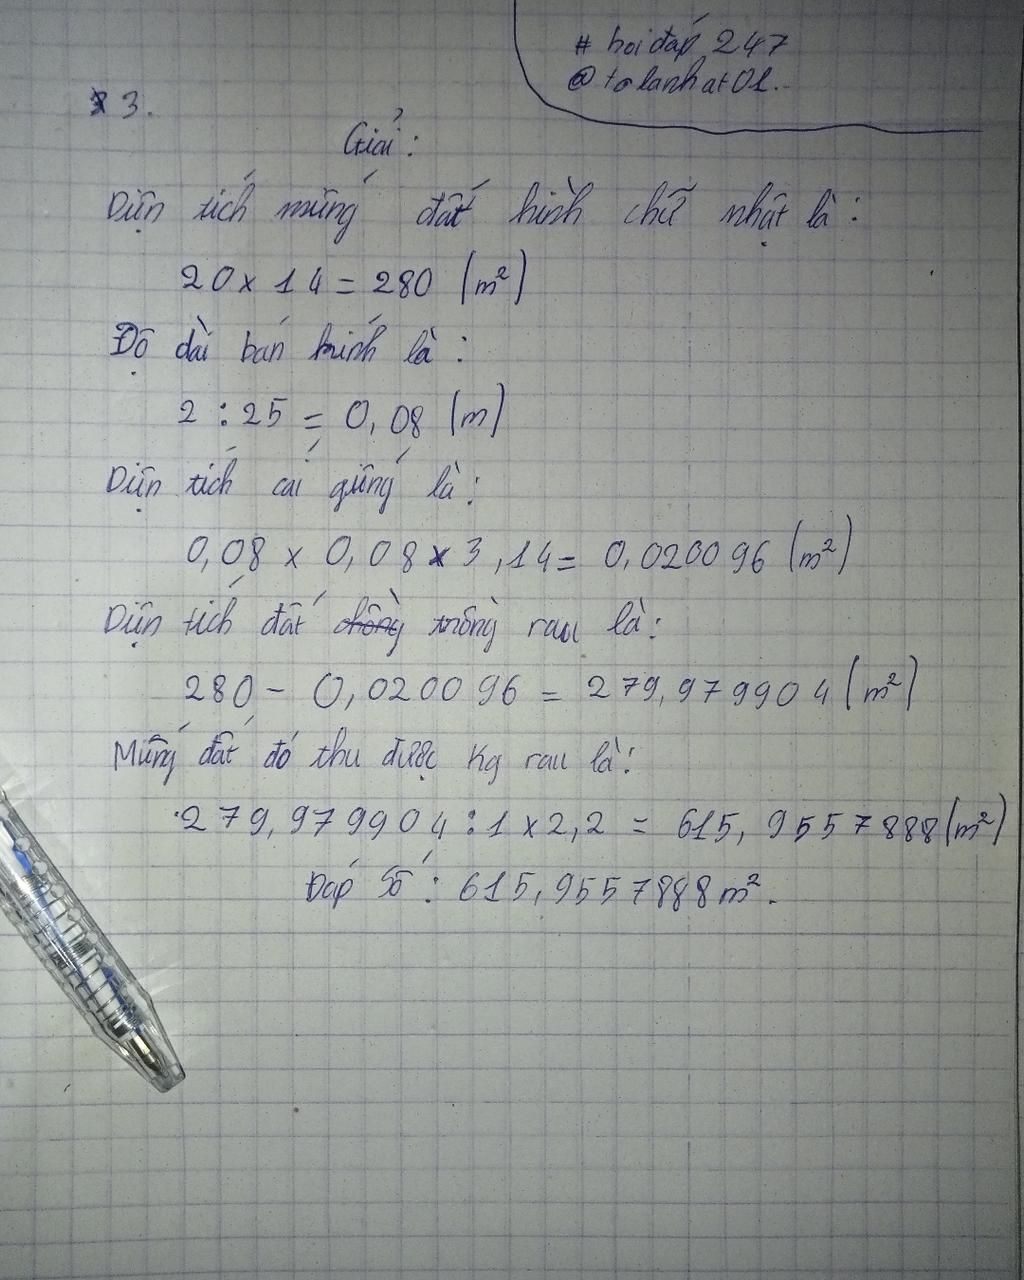 # hoi đáp 247
@tolanhat01..
3.
Giải:
Diện tích mứng đất hình chữ nhật là:
20 x 14 = 280 (m²)
Độ dài bán kính là:
2 : 25 = 0,08 (m)
Diện tích cái giếng là:
0,08 x 0,08 x 3,14 = 0,020096 (m²)
Diện tích đất chồng trồng rau là:
280 - 0,020096 = 279,979904 (m²)
Mứng đất đó thu được kg rau là:
279,979904 : 1 x 2,2 = 615,9557888 (m²)
Đáp số: 615,9557888 m².